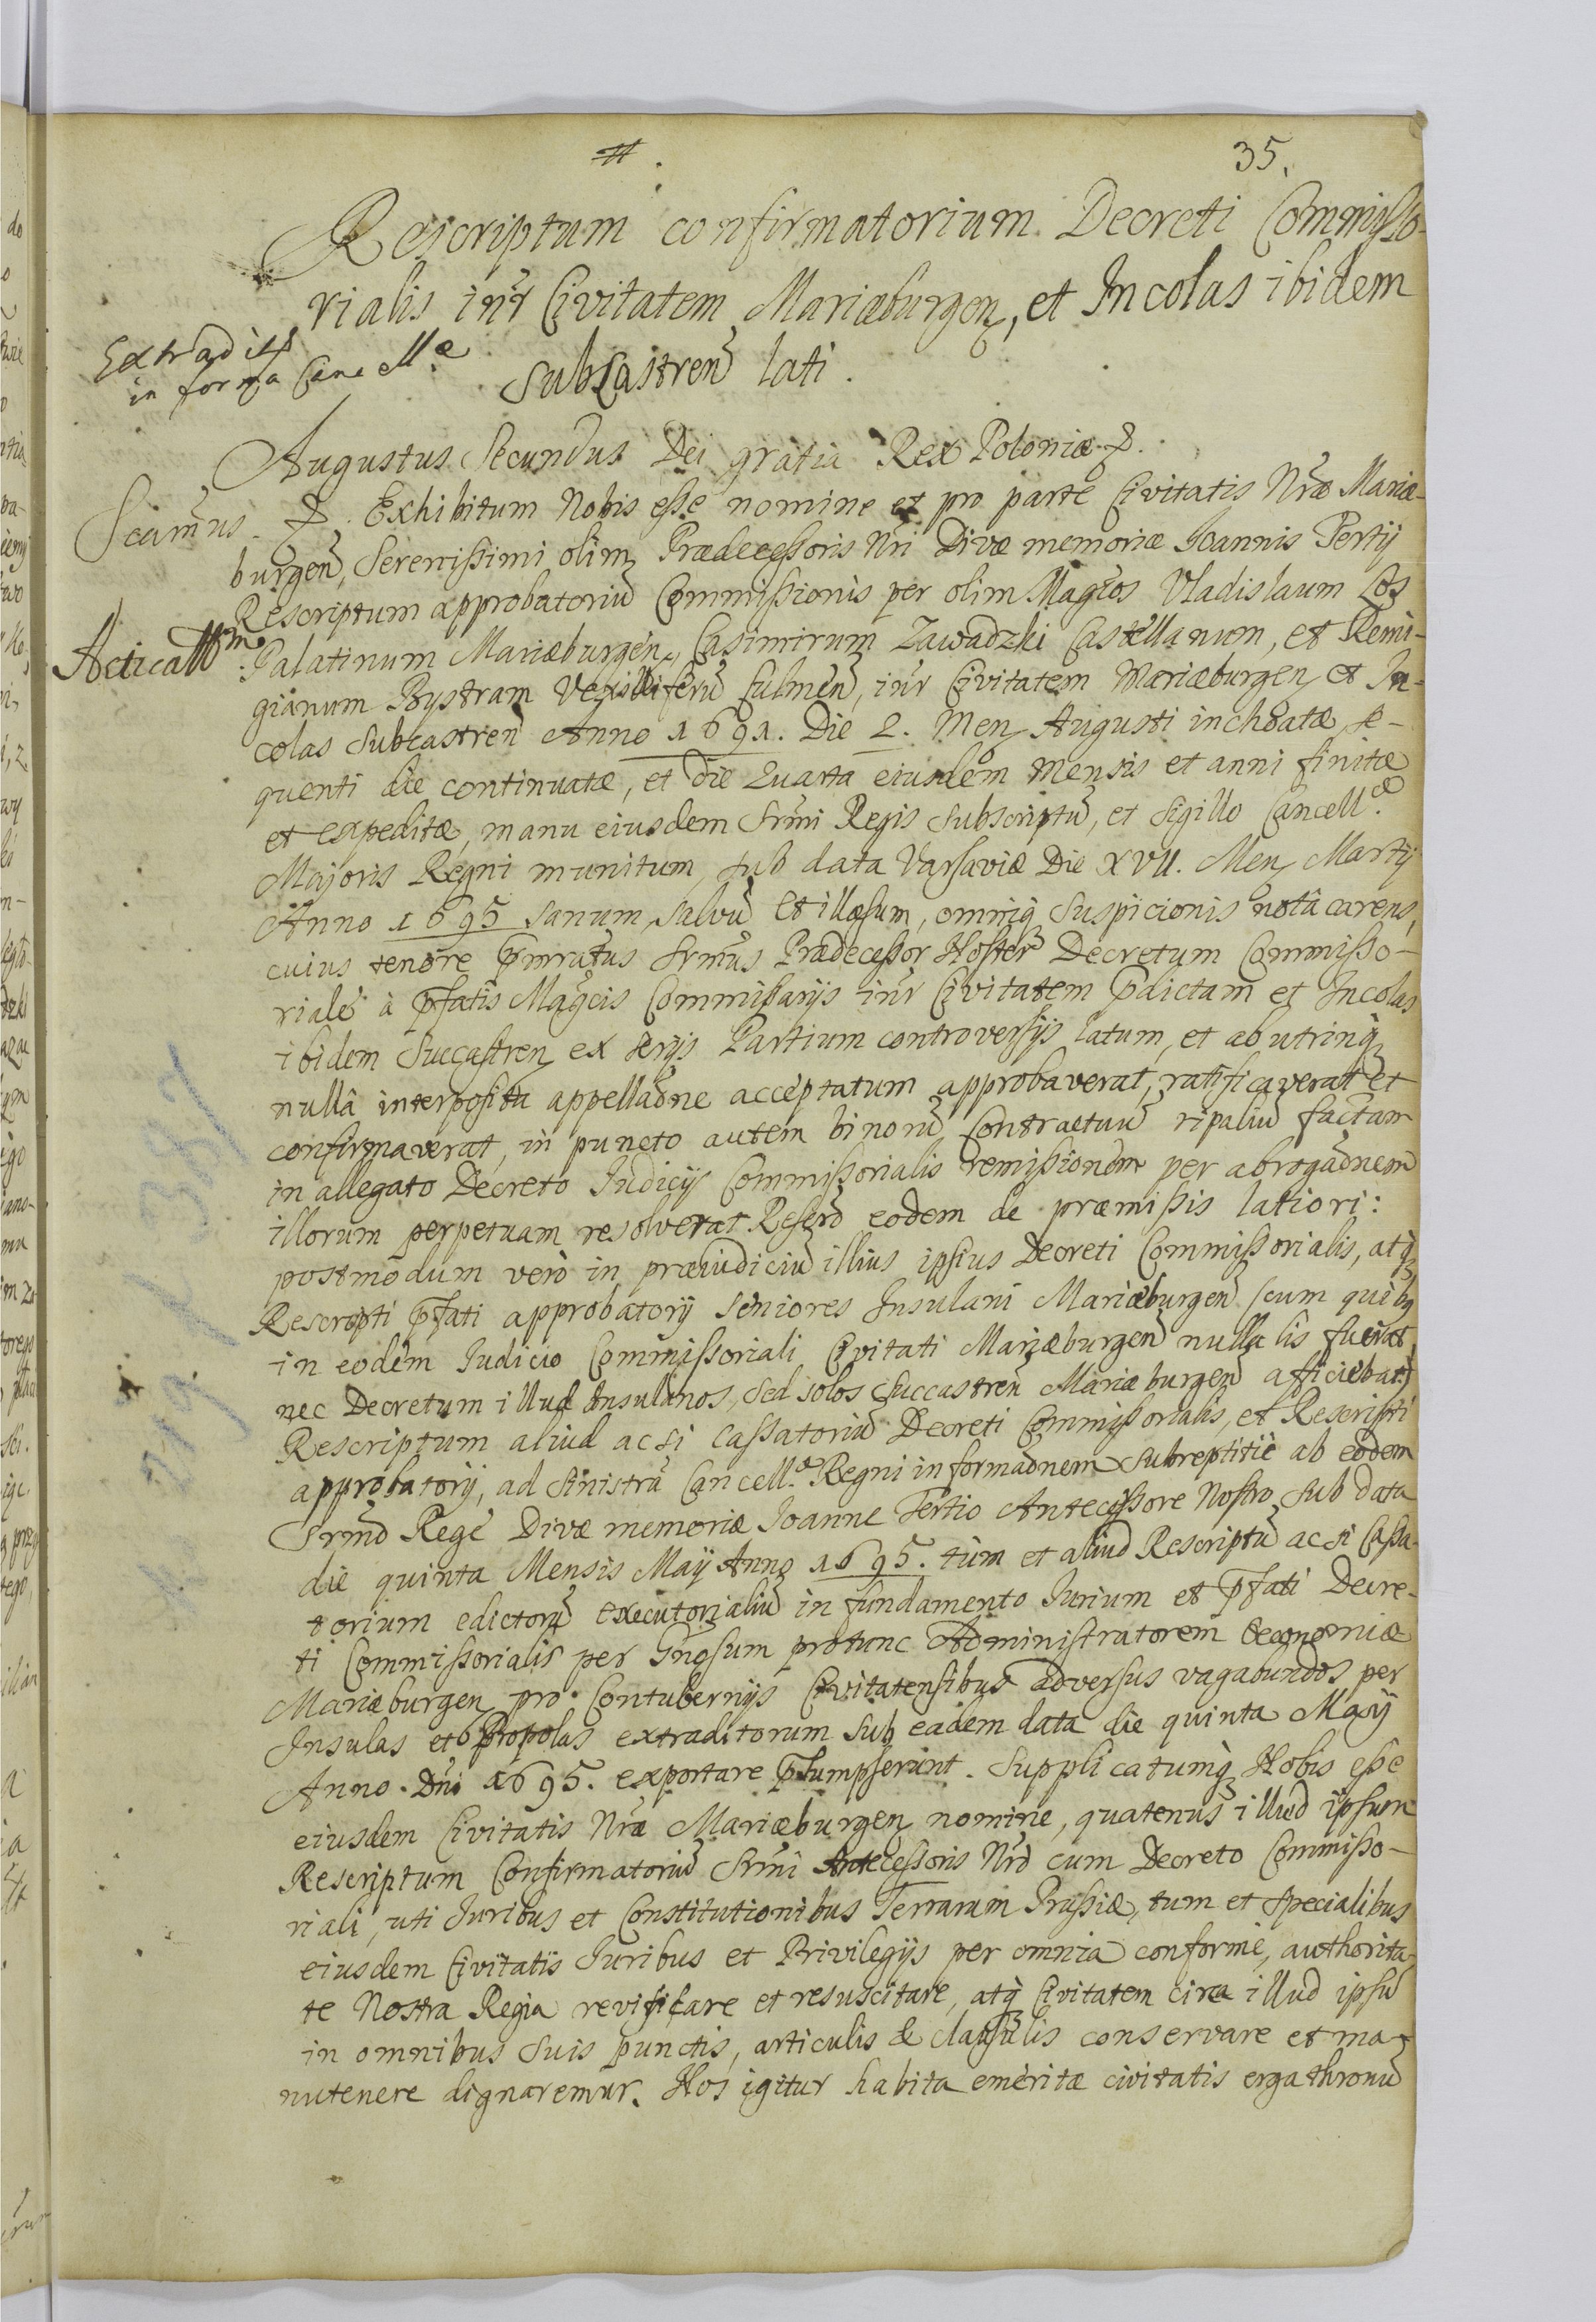 35.
Rescriptum confirmatorium Decreti Commisso-
rialis inr̃ Civitatem Mariæburgen, et Incolas ibidem
SubCastren̄ lati.
Extradit
in forma Canc ellæ
Augustus Secundus Dei gratia Rex Poloniæ &.
Scim̃us. &. Exhibitum Nobis esse nomine et pro parte Civitatis Nr̃æ Mariæ-
burgen̄, Serenissimi olim Prædecessoris Nr̃i Divæ memoriæ Ioannis Tertij
Rescriptum approbatoriũ Commissionis per olim Mag͠cos Vladislaum Łos
Palatinum Mariæburgen̄, Casimirum Zawadzki Castellanum, et Remi-
gianum Bystram Vexilliferũ Culmen̄, inr̃ Civitatem Mariæburgen et In-
colas Subcastren̄ Anno 1691. Die 2. Men Augusti inchoatæ, se-
quenti die continuatæ, et die Quarta eiusdem Mensis et anni finitæ
et expeditæ, manu eiusdem Srm̃i Regis Subscriptũ, et Sigillo Cancell.æ
Majoris Regni munitum, sub data Varsaviæ Die XVII. Men Martij
Anno 1695 sanum, salvũ et illæsum, omniq̨ Suspicionis notâ carens,
cuius tenore p̃mrat̃us Srm̃us Prædecessor Noster Decretum Commisso-
riale à p̃fatis Mag͠cis Commissarijs inr̃ Civitatem p̃dictam et Incolas
ibidem Succastren ex serijs Partium controversijs latum, et ab utrinq̨
nullâ interposita appellaõne acceptatum approbaverat, ratificaverat et
confirmaverat, in puncto autem binorũ Contractuũ ripaliũ factam
in allegato Decreto Iudicij Commissorialis remissionem per abrogaõnem
illorum perpetuam resolverat. eodem de præmissis latiori:
postmodum verò in præiudiciũ illius ipsius Decreti Commissorialis, atq̨
Rescripti p̃fati approbatorij Seniores Insulani Mariæburgen̄ (cum quibq
in eodem Iudicio Commissoriali Civitati Mariæburgen̄ nulla lis fuerat
nec Decretum illud Insulanos, sed solos Succastren̄ Mariæburgen̄ afficiebat)
Rescriptum aliud ac si Cassatoriũ Decreti Commissorialis, et Rescripti
approbatorij, ad sinistrã Cancell.æ Regni informaõnem subreptitiè ab eodem
Srm̃o Rege Divæ memoriæ Ioanne Tertio Antecessore Nostro sub data
die quinta Mensis Maij Anno 1695. tùm et aliud Rescriptũ ac si Cassa-
torium edictorũ executorialiũ in fundamento Iurium et p̃fati Decre-
ti Commissorialis per Gñosum protunc Administratorem Oeconomiæ
Mariæburgen pro Contubernijs Civitatensibus adversus vagabundos per
Insulas et Propolas extraditorum sub eadem data die quinta Maij
Anno Dñi 1695. exportare p̃sumpserunt. Supplicatumq̨ Nobis esse
eiusdem Civitatis Nr̃æ Mariæburgen nomine, quatenus illud ipsum
Rescriptum Confirmatoriũ Srm̃i Antecessoris Nr̃i cum Decreto Commisso-
riali, uti Iuribus et Constitutionibus Terrarum Prussiæ, tum et specialibus
eiusdem Civitatis Iuribus et Privilegijs per omnia conforme, authorita-
te Nostra Regia revificare et resuscitare, atq̨ Civitatem circa illud ipsũ
in omnibus suis punctis, articulis & clausulis conservare et ma-
nutenere dignaremur. Nos igitur habita emeritæ civitatis erga thronũ